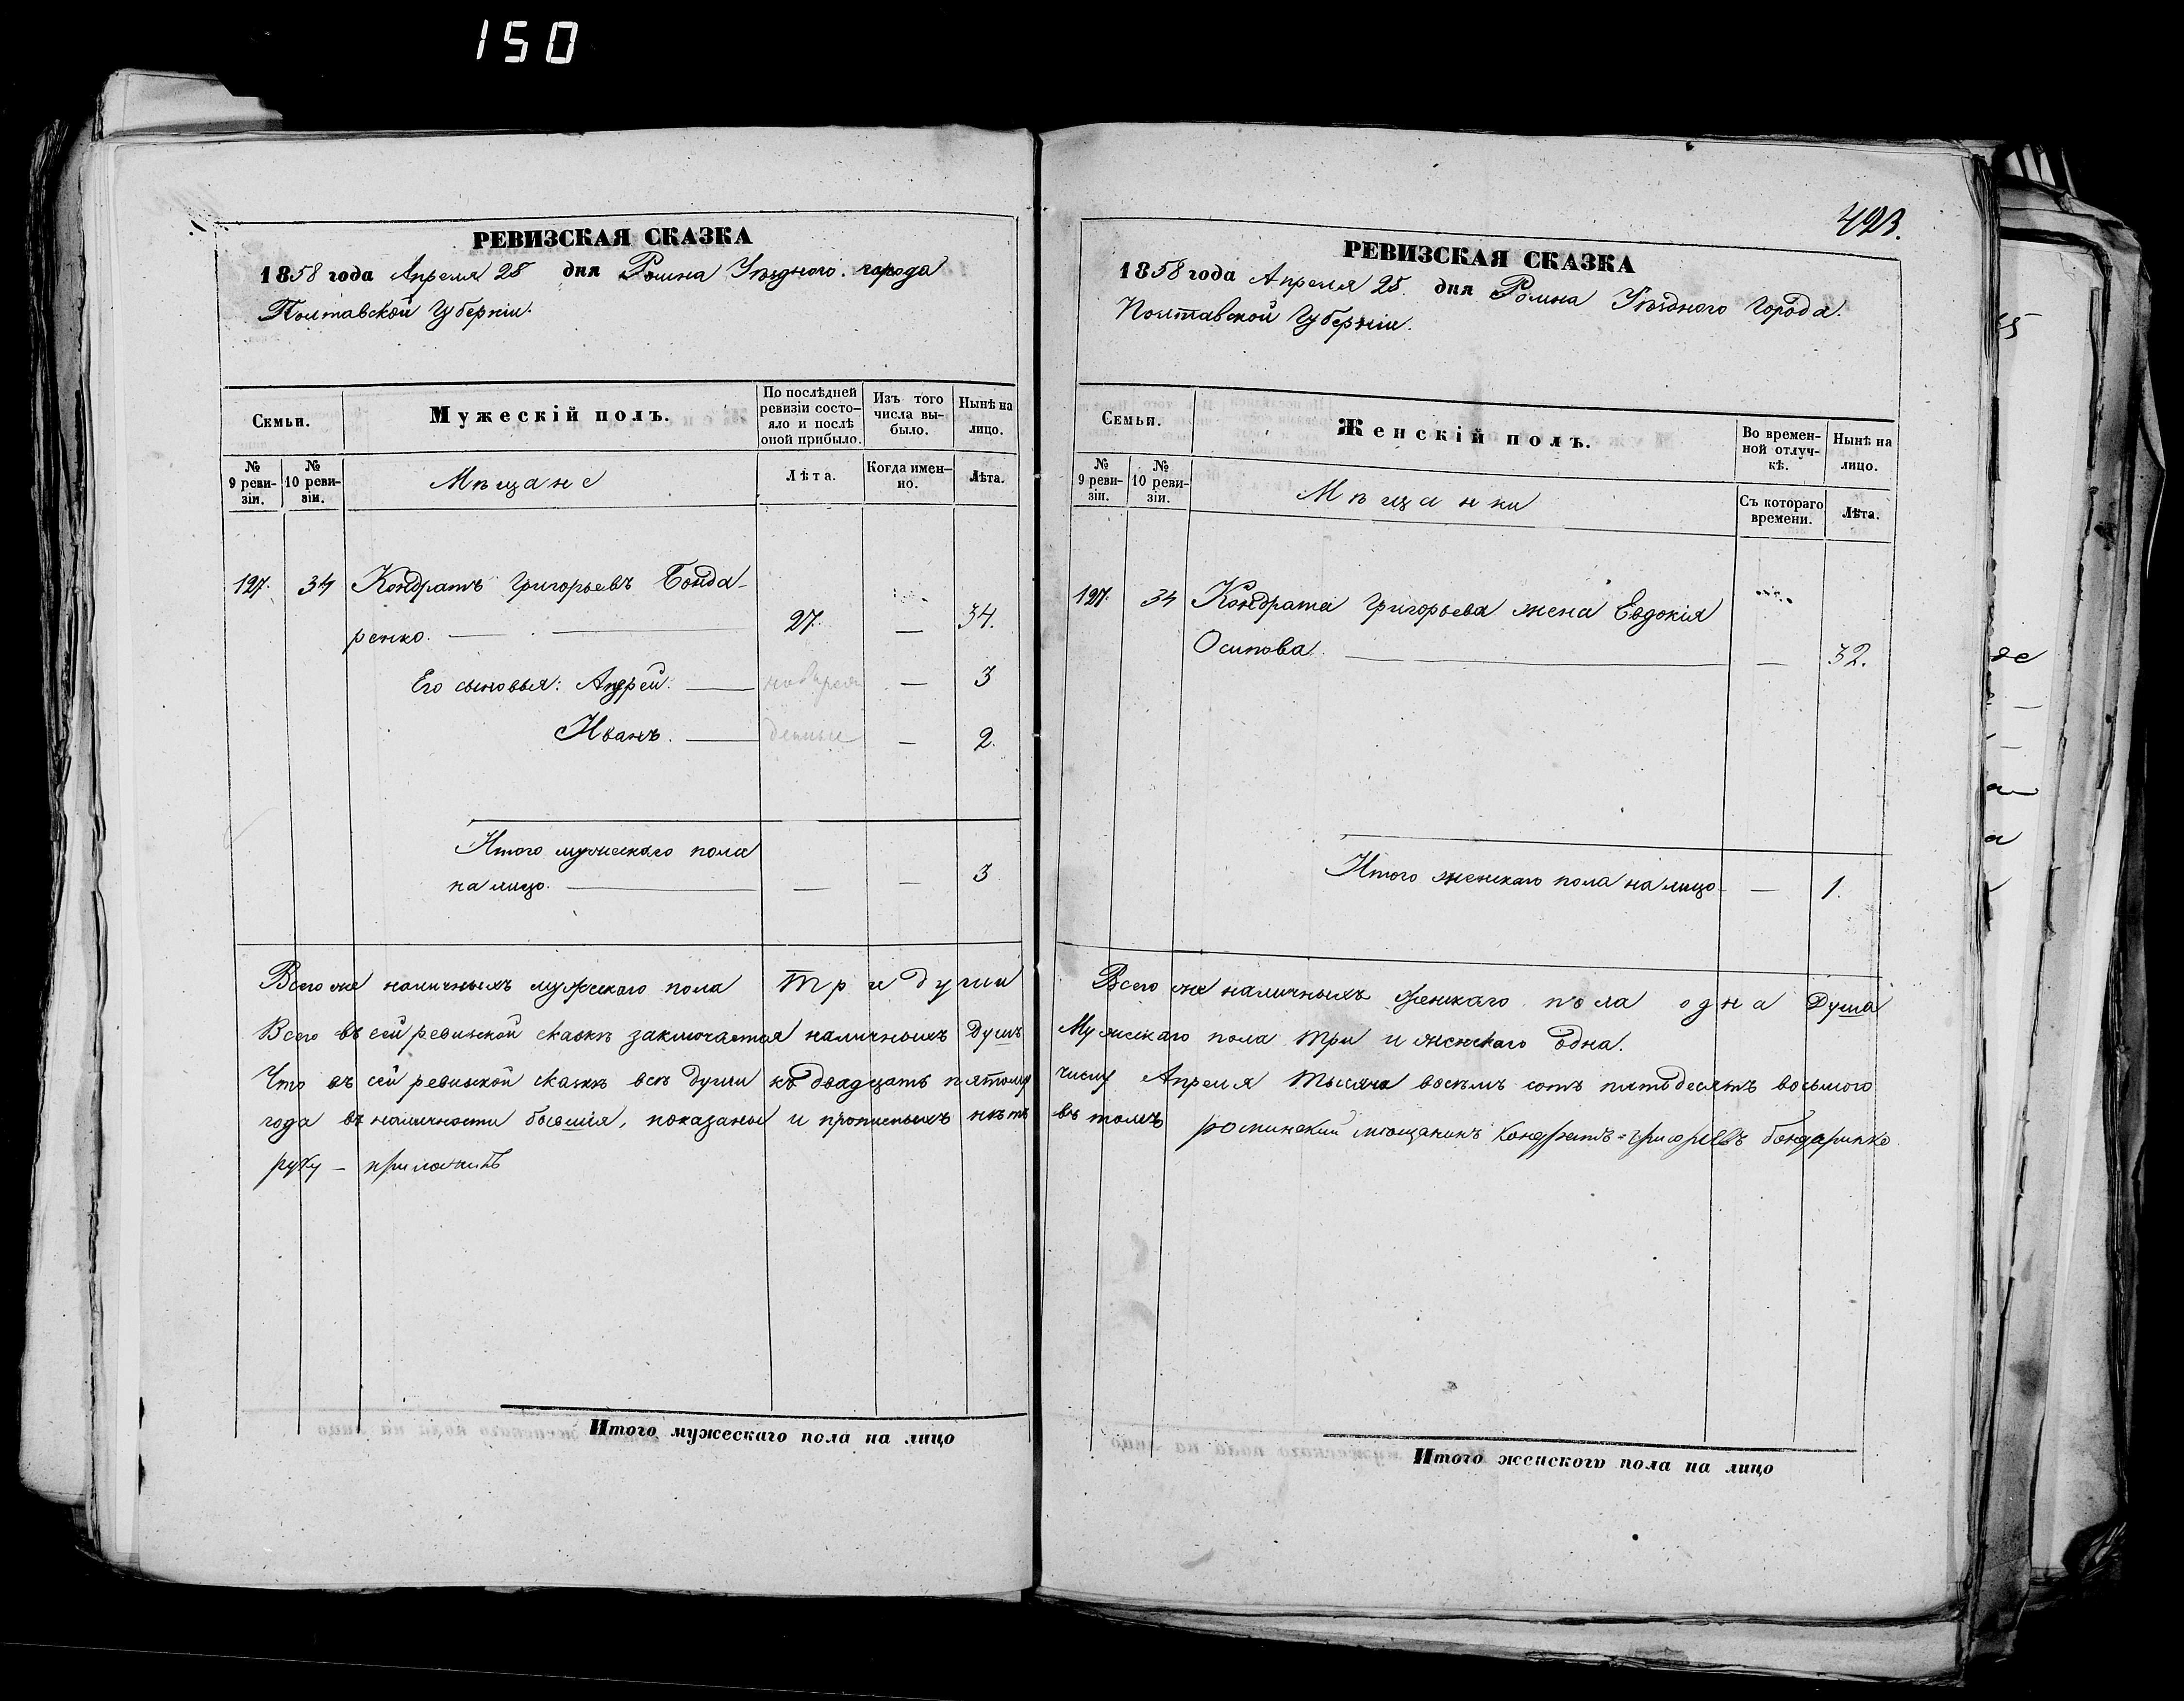 150
РЕВИЗСКАЯ СКАЗКА
1858 года Апреля 25 дня Ромна Уѣзднаго города
Полтавской Губерніи.
Семьи.
Мужескій полъ.
По послѣдней
ревизіи состо-
яло и послѣ
оной прибыло.
Изъ того
числа вы-
было.
Нынѣ на
лицо.
№
9 реви-
зіи.
№
10 реви-
зіи.
Мѣщане
Лѣта.
Когда имен-
но.
Лѣта.
127. 34 Кондратъ Григорьевъ Бонда-
ренко. — 27. — 34.
Его сыновья: Андрей. — — 3
Иванъ. — — 2.
Итого мужескаго пола
на лицо. — — — 3
Всего же наличныхъ мужескаго пола три души
Всего въ сей ревизской сказкѣ заключается наличныхъ душъ
Что въ сей ревизской сказкѣ всѣ души къ двадцать пятому
года въ наличности бывшія, показаны и прописныхъ нѣтъ
руку – приложилъ
Итого мужескаго пола на лицо
423.
РЕВИЗСКАЯ СКАЗКА
1858 года Апреля 25. дня Ромна Уѣзднаго Города.
Полтавской Губерніи.
Семьи.
Женскій полъ.
Во времен-
ной отлуч-
кѣ.
Нынѣ на
лицо.
№
9 реви-
зіи.
№
10 реви-
зіи.
Мѣщанки
Съ котораго
времени.
Лѣта.
127. 34 Кондрата Григорьева жена Евдокія
Осипова. — — 32.
Итого женскаго пола на лицо — — 1.
Всего же наличныхъ женскаго пола одна Душа
Мужскаго пола три и женскаго одна.
числу Апреля тысяча восемь сотъ пятьдесятъ восьмого
въ томъ роминский мющанинъ Кондратъ=Григоревъ бондаринко
Итого женского пола на лицо